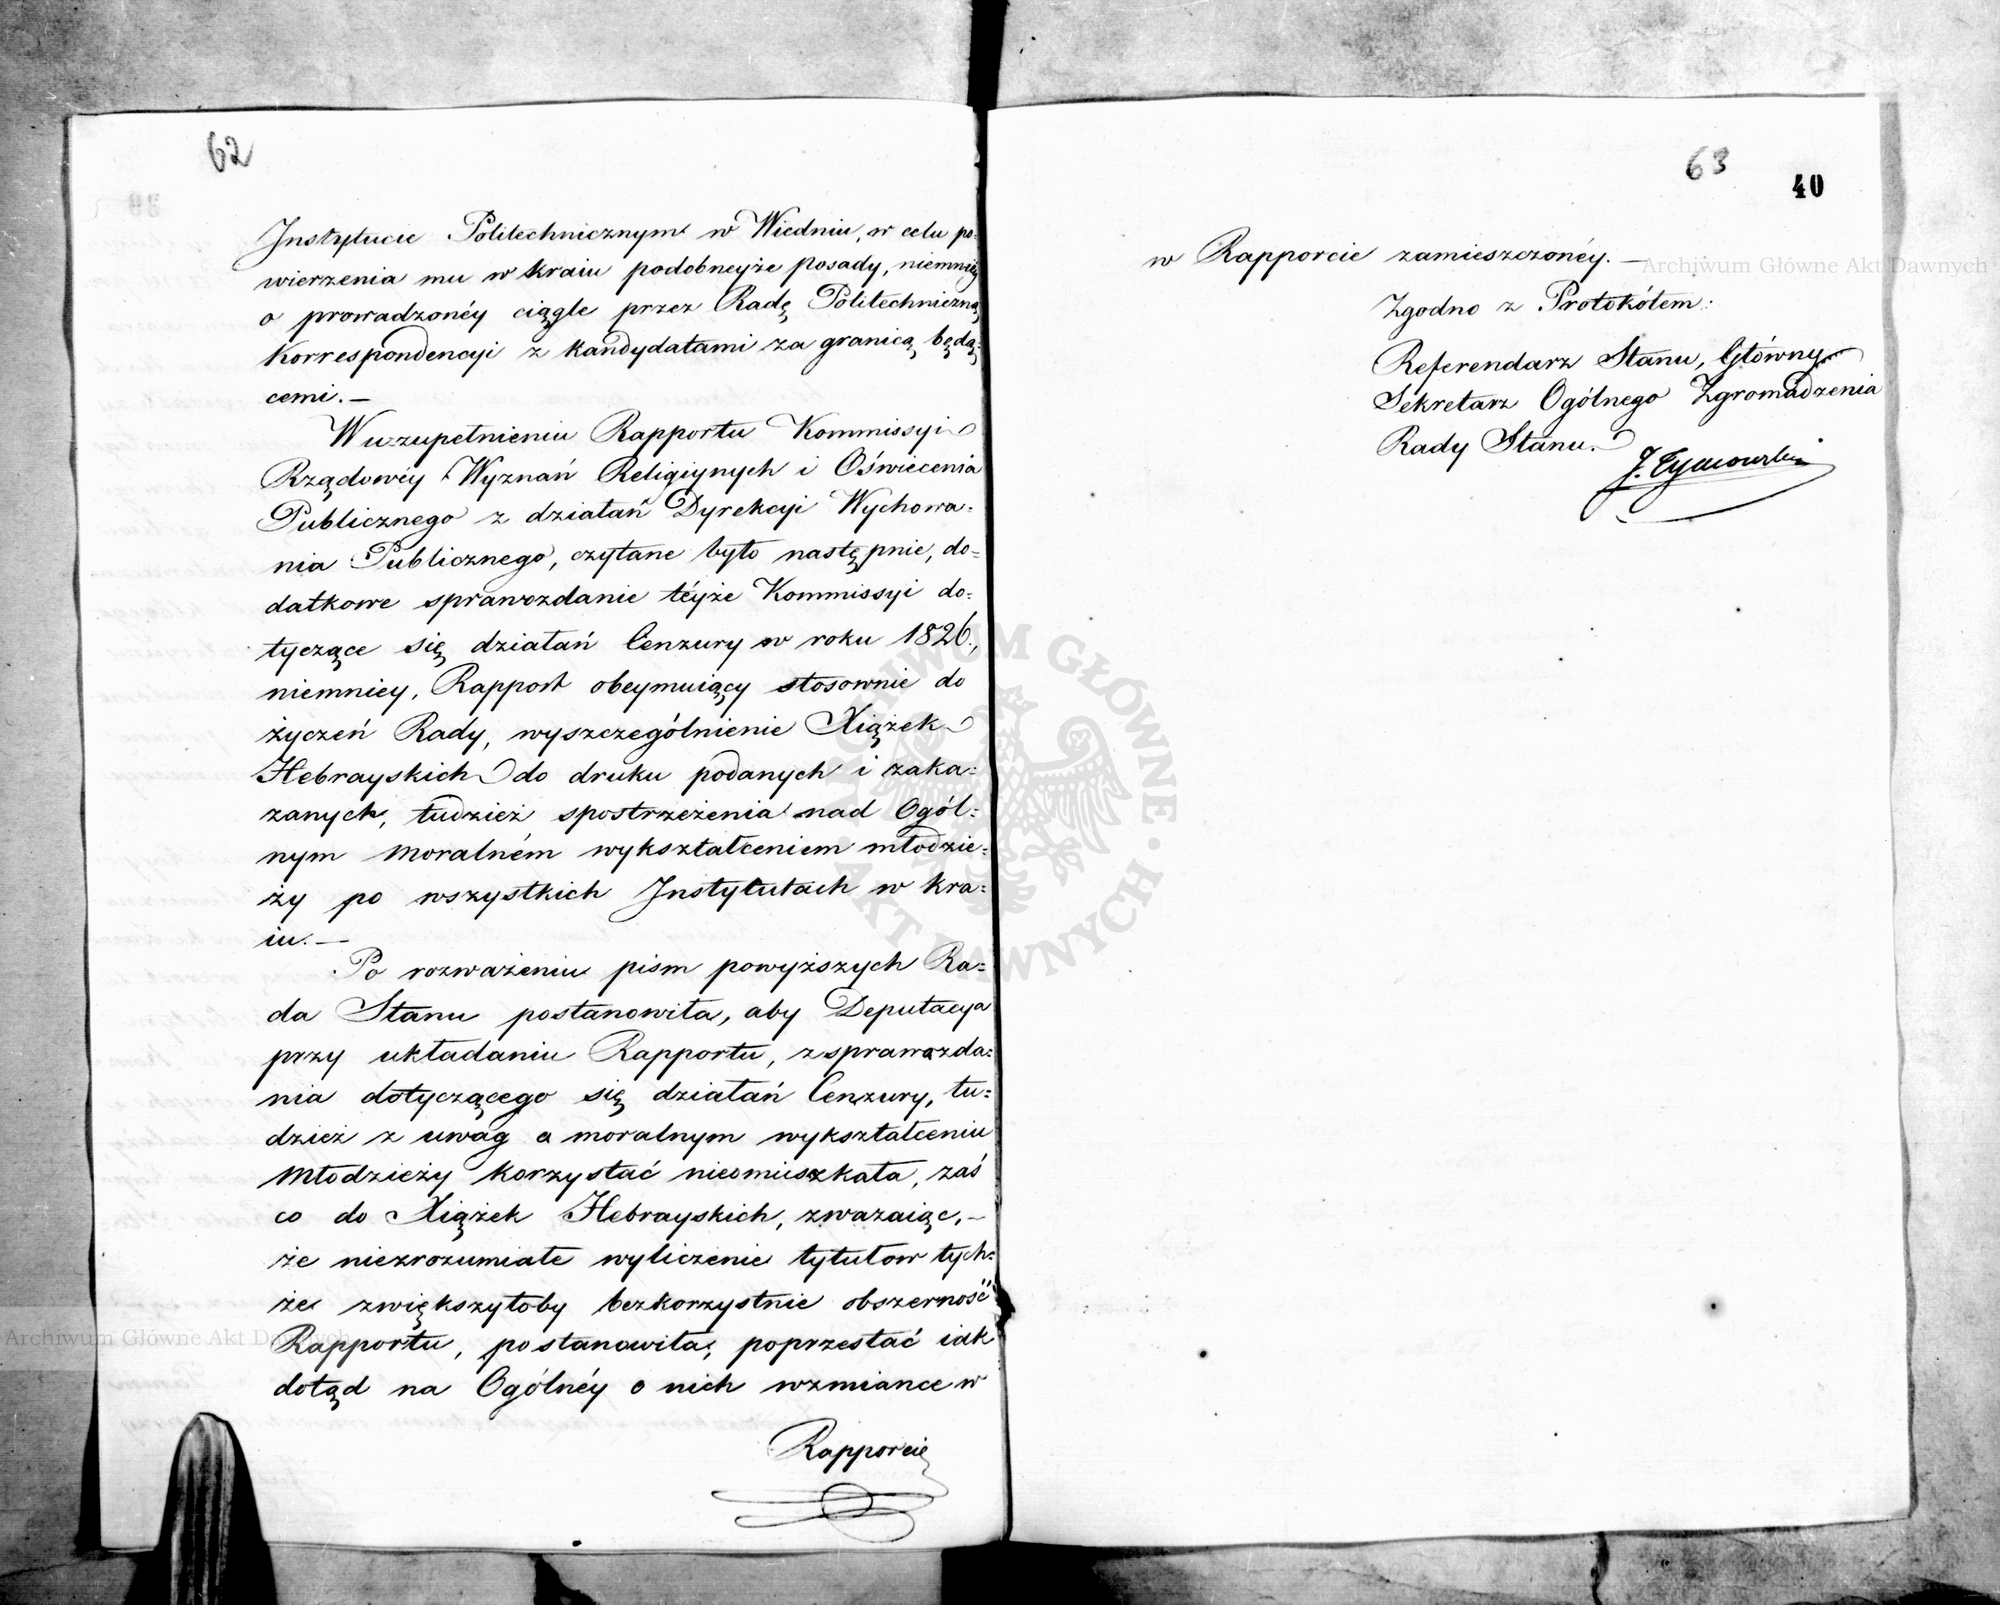 62
Instytucie Politechnicznym w Wiedniu, w celu po-
wierzenia mu w kraiu podobneyże posady, niemniéy
o prowadzonéy ciągle przez Radę Politechniczną
Korrespondencyi z kandydatami za granicą będą-
cemi.—
W uzupełnieniu Rapportu Kommissyi
Rządowéy Wyznań Religiynych i Oświecenia
Publicznego z działań Dyrekcyi Wychowa-
nia Publicznego, czytane było następnie, do-
datkowe sprawozdanie téyże Kommissyi do-
tyczące się działań Cenzury w roku 1826.,
niemniey, Rapport obeymuiący stosownie do
życzeń Rady, wyszczególnienie Xiążek
Hebrayskich do druku podanych i zaka-
zanych, tudzież spostrzeżenia nad Ogól-
nym moralném wykształceniem młodzie-
ży po wszystkich Instytutach w kra-
iu.—
Po rozważeniu pism powyższych Ra-
da Stanu postanowiła, aby Deputacya
przy układaniu Rapportu, z sprawozda-
nia dotyczącego się działań Cenzury, tu-
dzież z uwag o moralnym wykształceniu
Młodzieży korzystać nieomieszkała, zaś
co do Xiążek Hebrayskich, zważaiąc,—
że niezrozumiałe wyliczenie tytułow tych-
że zwiększyłoby bezkorzystnie obszerność
Rapportu, postanowiła, poprzestać iak
dotąd na Ogólnéy o nich wzmiance w
Rapporcie
63
40
w Rapporcie zamieszczonéy.—
Zgodno z Protokółem:
Referendarz Stanu, Główny
Sekretarz Ogólnego Zgromadzenia
Rady Stanu.
J. Tymowski
Archiwum Główne Akt Dawnych
Archiwum Główne Akt Dawnych
ARCHIWUM GŁÓWNE · AKT DAWNYCH ·